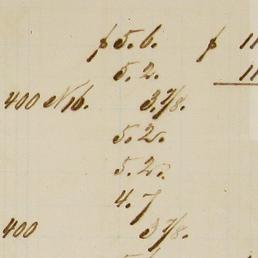 $ 5. 6. $ 11
5. 2. 11
400 No. 3.7/8.
5. 2.
5. 2.
4. 7
400 3.7/8.